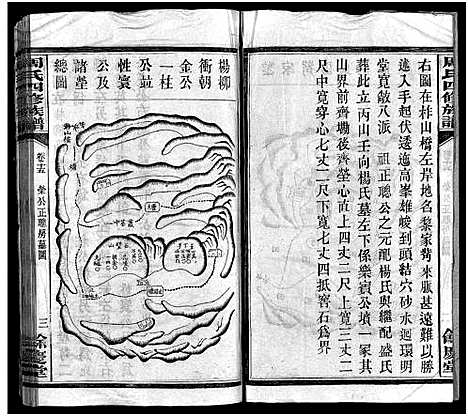 周氏四修族譜
右圖在梽山橋左岸地名黎家背來脈甚遠難以勝
述入手起伏逶迤高峯雄峻到頭結穴砂水迴環明
堂寬敞八派 祖正聰公之元配楊氏與繼配盛氏
葬此立丙山壬向楊氏墓左下係樂賓公墳一冢其
山界前齊塴後齊塋心直上四丈二尺上寬三丈二
尺中寬穿心七丈二尺下寬七丈四抵窖石為界
餘慶堂
楊柳
衝朝
金公
一柱
公並
性寰
公及
諸塋
總圖
周氏四修族譜
卷之十五
榮公正聰房墓圖
三
餘慶堂